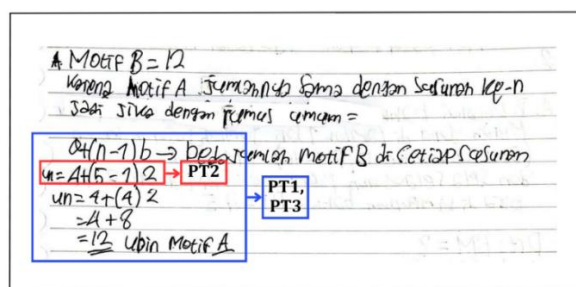 A Motif B = 12
karena Motif A jumlahnya sama dengan susunan ke-n
jadi jika dengan rumus umum =
a+(n-1)b → beda jumlah motif B di setiap susunan
un = 4+(5-1)2 → PT2
un = 4+(4)2
PT1,
PT3
= 4+8
= 12 ubin Motif A